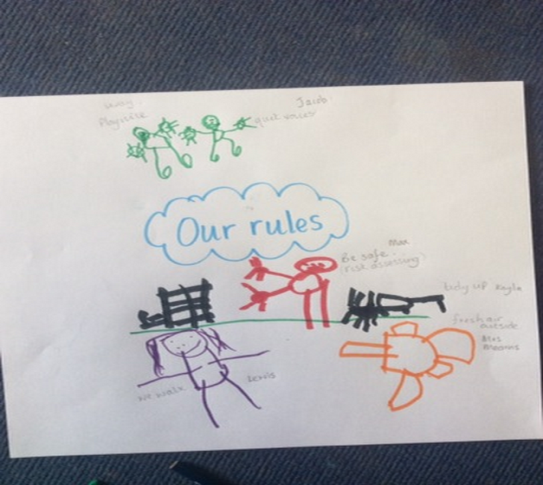 Play nice
Jacob
quiet voices
Our rules
Be safe
(risk assessing)
tidy up Kayla
fresh air
outside
we walk
Lewis